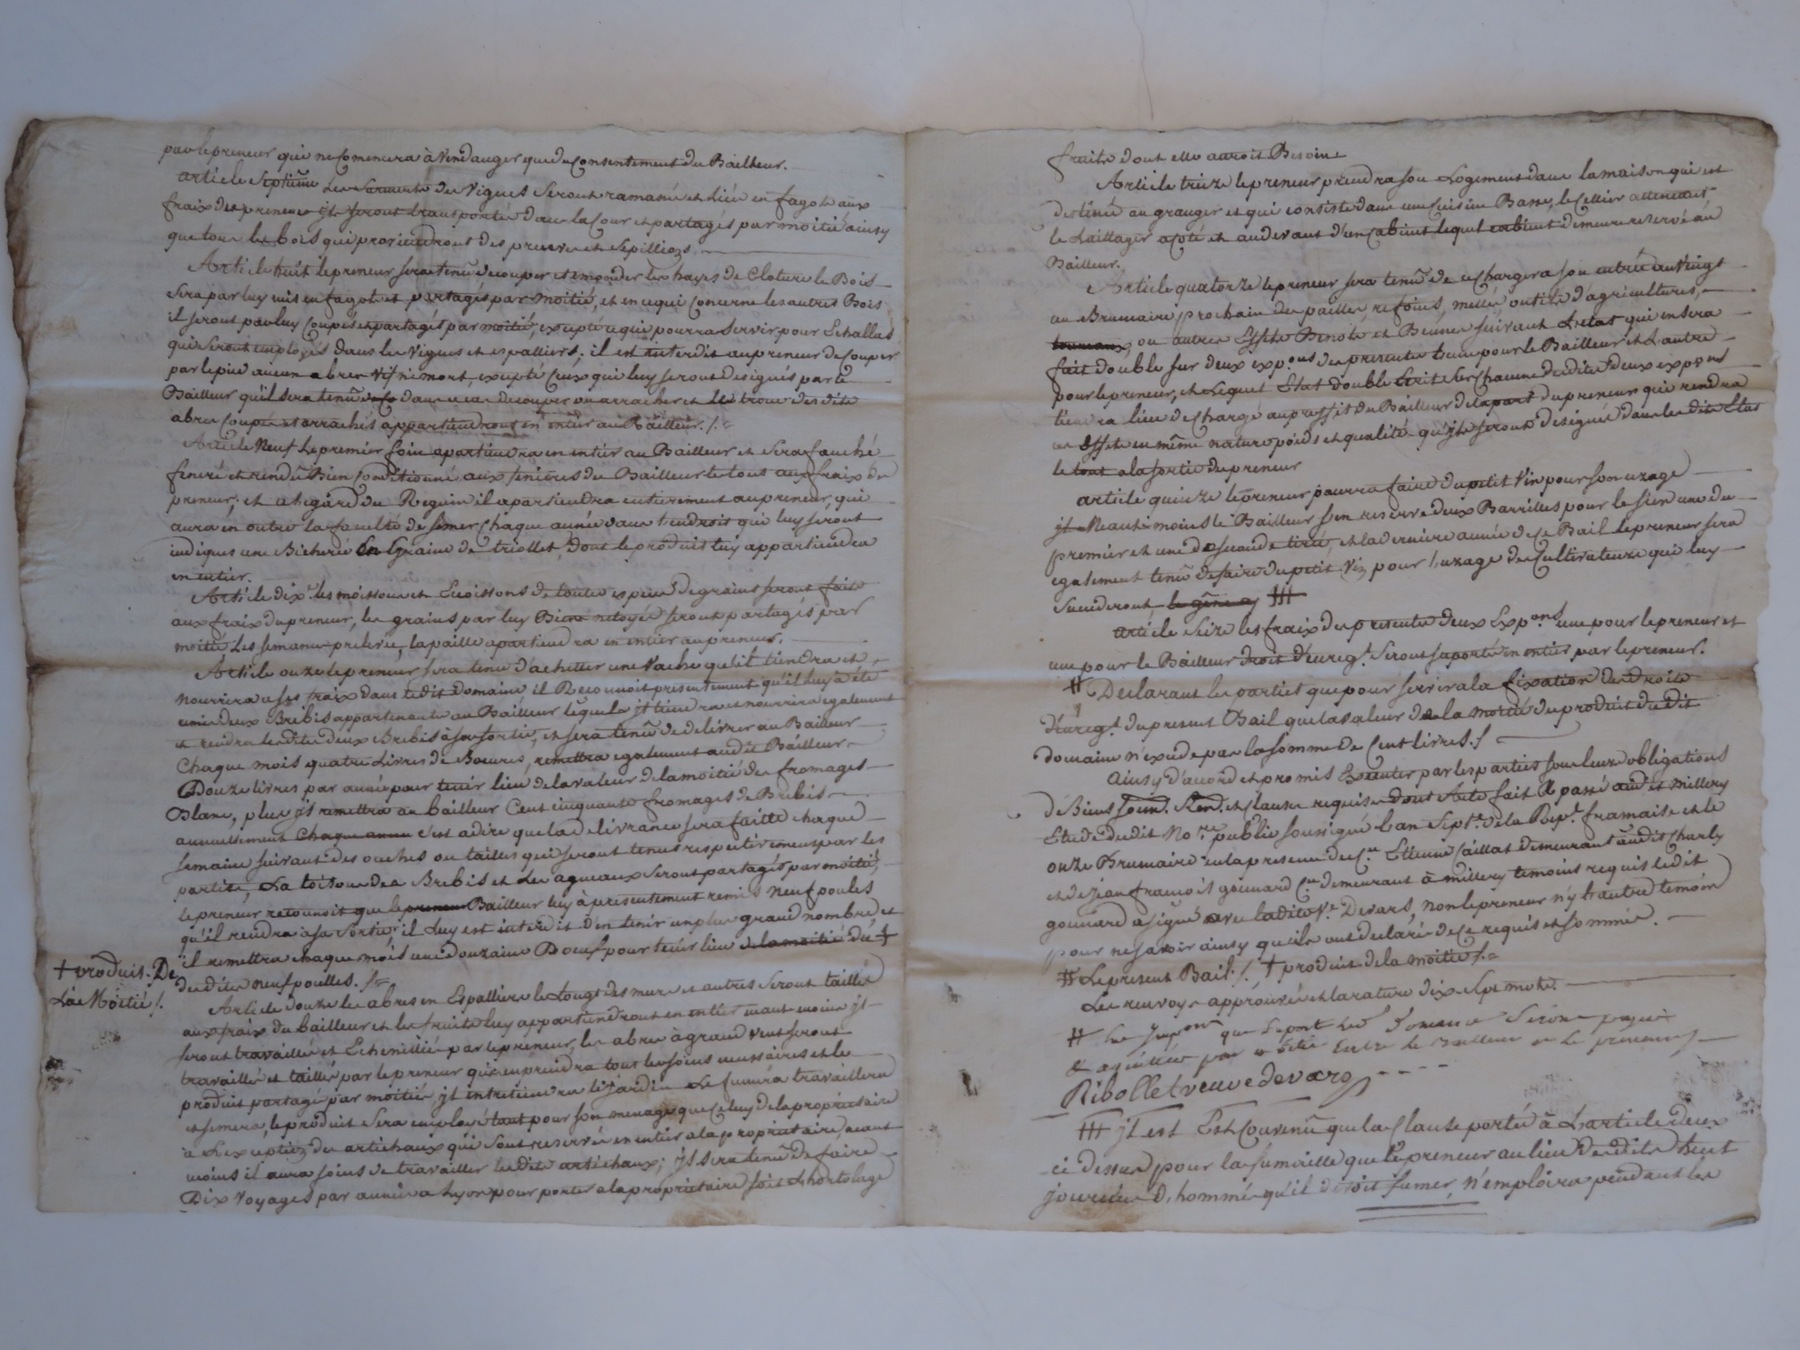 par le preneur qui ne Comencera à Vendanger que du Consentement du Bailleur.
article Septième Les Sarments des Vignes Seront ramassé et liée en fagots aux
fraix des preneur jls seront transportés dans la Cour et partagés par moitié ainsy
que tous les bois qui proviendront des
Article huit le preneur sera tenû de couper et emonder les hayes de Cloture le Bois
Sera par luy mis en fagots et partagés par moitié, et en ce qui Concerne les autres Bois
il seront par luy Coupés et partagés par moitié, excepté ce qui pourra Servir pour Echallas
qui seront employés dans les Vignes et espalliers; il est interdit au preneur de Couper
par le pied aucun abres vif ni mort, excepté Ceux qui luy seront designés par le
Bailleur qu'il sera tenû dans ce cas de couper ou arracher et les troncs des dits
abres Coupés et arrachés appartiendront en entier au Bailleur ./.
Article Neuf Le premier foin apartiendra en entier au Bailleur et Sera fauché
feneré et rendû Bien Conditionné aux fenieres du Bailleur le tout aux fraix du
preneur; et a l'egard du Reguin il apartiendra entierement au preneur, qui
aura en outre la faculté de semer Chaque année dans l'endroit qui luy seront
indiqués une Bicherée En Graine de triollet, dont le produit luy appartiendra
en entier.
Article dix.e les moissons et de toutes especes de grains seront fait
aux fraix du preneur, les grains par luy Bien netoyés seront partagés par
moitié Les semances prelevée, la paille apartiendra en entier au preneur.
Article onze le preneur sera tenu d'achetter une Vache qu'il tiendra et
nourrira a ses fraix dans le dit Domaine, il Reconnoit presentement qu'il luy a été
remis deux Brebis appartenante au Bailleur lesquels jl tiendra et nourrira egalement
et rendra les dites deux Brebis à sa sortie, et sera tenû de delivrer au Bailleur
Chaque mois quatre Livres de Boeures, remettra egalement au dit Bailleur
Douze livres par année pour tenir lieu de la valeur de la moitié des fromages
Blanc, plus jl remettra au bailleur Cent cinquante fromages de Brebis
annuellement Chaque année c'est adire que la delivrance sera faitte chaque
semaine suivant des oches ou tailles qui seront tenus respectivement par les
parties, La toison des Brebis et Les agneaux Seront partagés par moitié,
le preneur reconnoit que le preneur Bailleur luy à presentement remis Neuf poules
qu'il rendra à sa Sortie, il Luy est interdit d'en tenir un plus grand nombre et
il remettra chaque mois une douzaine d'Oeufs pour tenir lieu de la moitié du +
+ produit. De
La Moitié /.
des dites neuf poulles ./.
Article douze les abres en Espalliers le Long des murs et autres Seront taillés
aux fraix du bailleur et les fruits luy appartiendront en entier neant-moins jls
seront travaillés et Echenillié par le preneur, les abres à grand vent seront
travaillé et taillé par le preneur qui en prendra tous les soins necessaires et le
produit partagé par moitié, jl entretiendra le jardin Le fumera travaillera
et semera, le produit Sera employé tant pour son menage que Celuy de la propriétaire
à L'exception des artichaux qui sont reservée en entier a la propriétaire, neant
moins il aura soins de travailler les dits artichaux; jl sera tenu de faire
Dix Voyages par année a Lyon pour porter a la propriétaire soit L'hortolage
fruits dont elle auroit Besoin
Article treize le preneur prendra son Logement dans la maison qui est
destiné au granger et qui consiste dans une Cuisine Basse, le Cellier attenant
le Laittager acoté et au devant d'un Cabinet lequel cabinet demeure reservé au
Bailleur.
Article quatorze le preneur sera tenû de ce Charger a son entrée au Vingt
un Brumaire prochain des pailles refoins, outils d'agricultures,
ou autres Effets Benots et Bennes suivant L'etat qui en sera
fait double sur deux exp.ons des presentes l'une pour le Bailleur et L'autre
pour le preneur, et Lequel Etat double Ecrit sur Chacune des dites deux expons
tiendra lieu de Charge au proffit du Bailleur de la part du preneur qui rendra
ces Effets en même nature poids et qualité qu'jls seront designés dans le dit Etat
le tout a la sortie du preneur
article quinze le preneur pourra faire du petit Vin pour son uzage
jl Neant-moins le Bailleur s'en reserve deux Barrilles pour le sien une du
premier et une de seconde tirée, et la derniere année de ce Bail le preneur sera
egalement tenû de faire du petit Vin pour l'uzage des Cultivateurs qui luy
Succederont ⧻
article Seize les fraix des presentes deux Expons une pour le preneur et
une pour le Bailleur droit d'enreg.t Seront suportés en entier par le preneur.
# Declarant les parties que pour servir a la fixation des droits
d'enreg.t du present Bail que la valeur de la moitié du produit du dit
domaine n'exede pas la somme de Cent livres ./
Ainsy d'acord et promis Executer par les parties sous leurs obligations
de Biens et Clauses requises dont Acte fait & passé audit Millery
Etude du dit No.re public soussigné l'an Sept.e de la Rep.e framaise et le
onze Brumaire en la presence de C.en Etienne Caillat demeurant audit Charly
et de Jean francois gonnard C.en demeurant à Millery temoins requis le dit
gonnard a signé avec la dite V.e Devars, non le preneur n'y l'autre temoin
pour ne savoir ainsy qu'ils ont declaré de ce requis et sommés.
# Le present Bail ./. + produit de la moitié /.
Les renvoys approuvés et la rature dix sept mots.
# Les que Suport Led Domaine Seront payés
& aquittées par moitié Entre le Bailleur et le preneur /
Ribollet veuve devars
⧻ jl est Est Convenû que la Clause portée à L'article deux
ci dessus pour la fumaille que le preneur au lieu des dits huit
journées d'homme qu'il devoit fumer, n'emploira pendant les